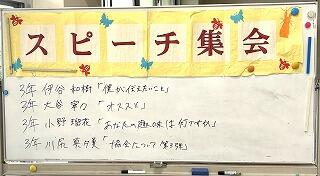 スピーチ集会
3年 伊谷 和樹 「僕が伝えたいこと」
3年 大谷 寧乃 「オススメ」
3年 小野 瑠花 「あなたの趣味は何ですか」
3年 川尻 菜々美 「協会について 第3弾」